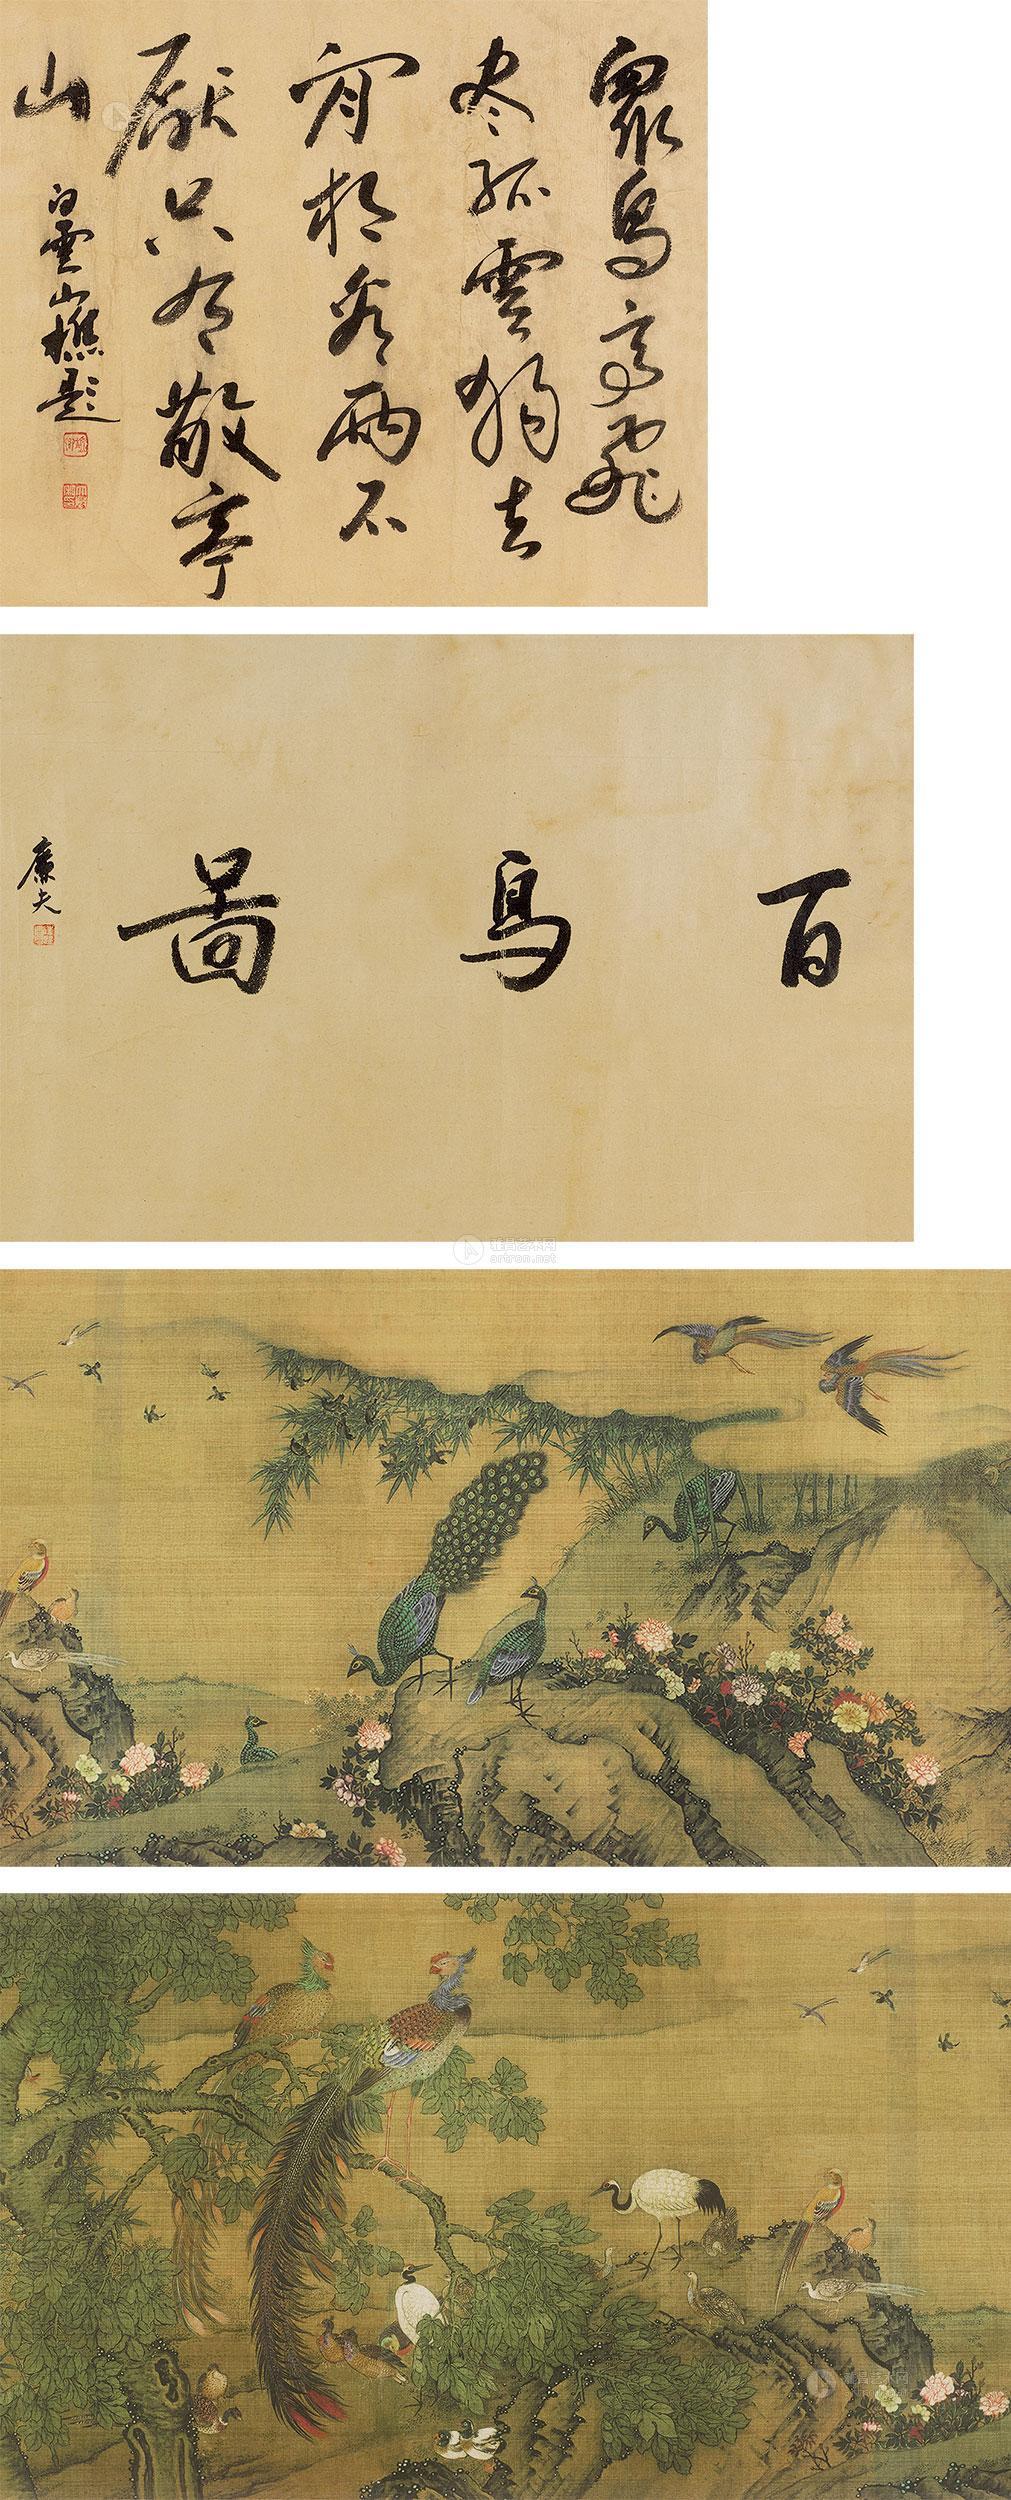 眾鳥高飛
尽孤雲獨去
閒相看兩不
厭只有敬亭
山
白雲山樵題
百鳥圖
廉夫
雅昌艺术网
artron.net